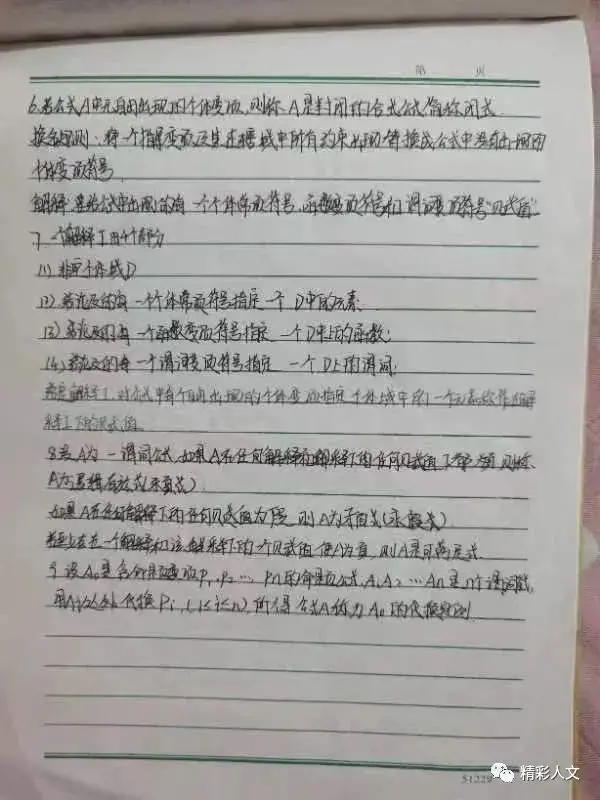 第 页
6.若公式A中无自由出现的个体变项,则称A是封闭的合式公式,简称闭式.
换名规则:将一个指导变项及其在辖域中所有约束出现替换成公式中没有出现的
个体变项符号.
解释:是给公式中出现的每一个个体常项符号,函数变项符号和谓词变项符号
7.一个解释I由4个部分
(1)非空个体域D
(2)若涉及的每一个个体常项符号指定一个D中的元素
(3)若涉及的每一个函数变项符号指定一个D中上的函数;
(4)若涉及的每一个谓词变项符号指定一个D上的谓词;
解释I,对公式中每个自由出现的个体变项指定个体域中的一个元素称作在解
释I下的赋值.
8.若A为一谓词公式,如果A在任何解释和解释下的任何赋值下都为真,则称
A为逻辑有效式(永真式)
如果A在任何解释下的任何赋值为假,则A为矛盾式(永假式)
若至少在一个解释和该解释下的一个赋值,使A为真,则A是可满足式
9.设A₀是含命题变项P₁,P₂…Pn的命题公式,A₁A₂…An是n个谓词公式,
用Ai处处代换Pi,(1≤i≤n),所得公式A称为A₀的代换实例
51228
精彩人文